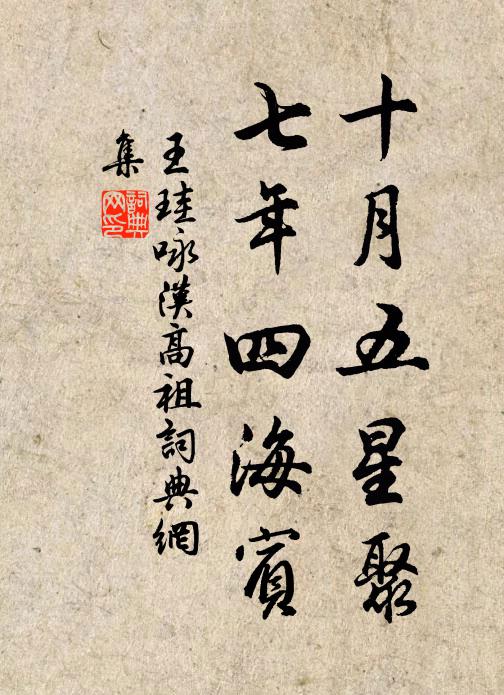 十月五星聚
七年四海賓
王珪咏漢高祖詞典網
集
詞典
网印